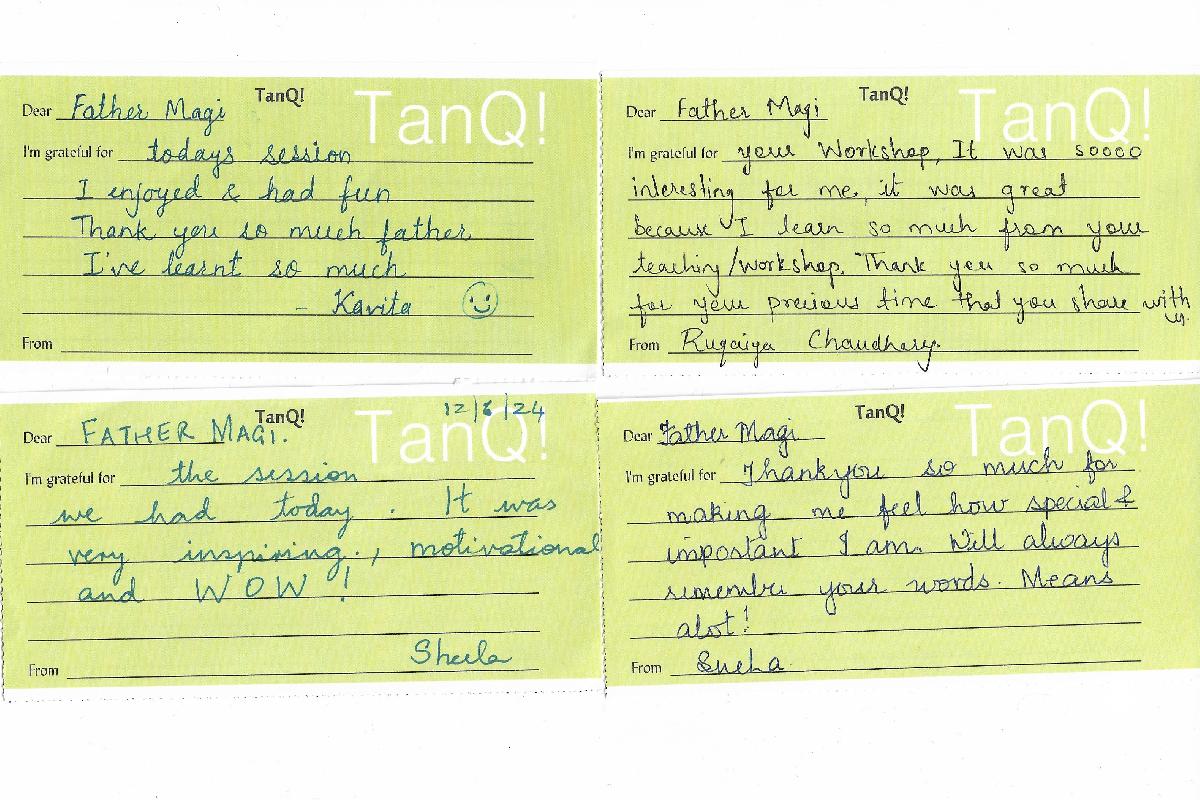 TanQ!
TanQ!
Dear Father Magi
I'm grateful for todays session
I enjoyed & had fun
Thank you so much father
I've learnt so much
- Kavita
From
TanQ!
TanQ!
Dear Father Magi
I'm grateful for your Workshop, It was soooo
interesting for me, it was great
because I learn so much from your
teaching/workshop. Thank you so much
for your precious time that you share with
us.
From Ruqaiya Chaudhary.
TanQ!
TanQ!
12/6/24
Dear FATHER MAGI.
I'm grateful for the session
we had today. It was
very inspiring., motivational
and WOW!
Sheela
From
TanQ!
TanQ!
Dear Father Magi
I'm grateful for Thankyou so much for
making me feel how special &
important I am. Will always
remember your words. Means
alot!
From Sneha